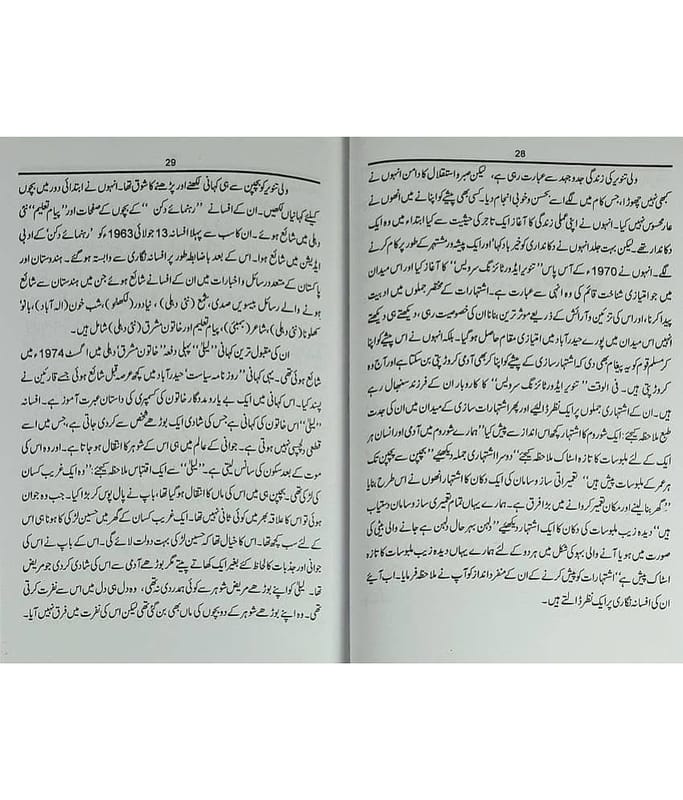 28
ولی تنویر کی زندگی جدوجہد سے عبارت رہی ہے، لیکن صبر و استقلال کا دامن انہوں نے
کبھی نہیں چھوڑا، جس کام میں لگے اسے بحسن و خوبی انجام دیا۔ کسی بھی پیشے کو اپنانے میں انھوں نے
عار محسوس نہیں کیا۔ انہوں نے اپنی عملی زندگی کا آغاز ایک تاجر کی حیثیت سے کیا ابتداء میں وہ ایک
دکاندار تھے۔ لیکن بہت جلد انہوں نے دکانداری کو خیر باد کہا اور ایک پیشہ ور مشتہر کے طور پر کام کرنے
لگے۔ انہوں نے 1970ء کے آس پاس ''تنویر ایڈورٹائزنگ سرویس'' کا آغاز کیا اور اس میدان
میں جو امتیازی شناخت قائم کی وہ انہی سے عبارت ہے۔ اشتہارات کے مختصر جملوں میں ادبیت
پیدا کرنا، اور اس کی تزئین و آرائش کے ذریعے موثر ترین بنانا ان کی خصوصیت رہی، دیکھتے ہی دیکھتے
اس میدان میں پورے حیدرآباد میں امتیازی مقام حاصل ہو گیا۔ بلکہ انہوں نے اس پیشے کو اپنا
کر مسلم قوم کو یہ پیغام بھی دی کہ اشتہار سازی کے پیشے کو اپنا کر بھی آدمی کروڑ پتی بن سکتا ہے اور آج وہ
کروڑ پتی ہیں۔ فی الوقت ''تنویر ایڈورٹائزنگ سرویس'' کا کاروبار ان کے فرزند سنبھال رہے
ہیں۔ ان کے اشتہاری جملوں پر ایک نظر ڈالیے اور پھر اشتہارات سازی کے میدان میں ان کی جدت
طبع ملاحظہ کیجئے: ایک شوروم کا اشتہار کچھ اس انداز سے پیش کیا ''ہمارے شوروم میں آدمی اور انسان ہر
ایک کے لئے ملبوسات کا تازہ اسٹاک ملاحظہ کیجئے'' دوسرا اشتہاری جملہ دیکھئے'' بچپن سے پچپن تک
ہر عمر کے ملبوسات پیش ہیں'' تعمیراتی ساز و سامان کی ایک دکان کا اشتہار انھوں نے اس طرح بنایا
''گھر بنا لینے اور مکان تعمیر کروانے میں بڑا فرق ہے۔ ہمارے یہاں تمام تعمیری ساز و سامان دستیاب
ہیں'' دیدہ زیب ملبوسات کی دکان کا ایک اشتہار دیکھئے'' دلہن بہرحال دلہن ہے جانے والی بیٹی کی
صورت میں ہو یا آنے والی بہو کی شکل میں ہر دو کے لئے ہمارے یہاں دیدہ زیب ملبوسات کا تازہ
اسٹاک پیش ہے'' اشتہارات کو پیش کرنے کے ان کے منفرد انداز کو آپ نے ملاحظہ فرمایا۔ اب آیئے
ان کی افسانہ نگاری پر ایک نظر ڈالتے ہیں۔
29
ولی تنویر کو بچپن سے ہی کہانی لکھنے اور پڑھنے کا شوق تھا۔ انہوں نے ابتدائی دور میں بچوں
کیلئے کہانیاں لکھیں۔ ان کے افسانے ''رہنمائے دکن'' کے بچوں کے صفحات اور ''پیام تعلیم'' نئی
دہلی میں شائع ہوئے۔ ان کا سب سے پہلا افسانہ 13 جولائی 1963 کو 'رہنمائے دکن' کے ادبی
ایڈیشن میں شائع ہوا۔ اس کے بعد باضابطہ طور پر افسانہ نگاری سے وابستہ ہو گئے۔ ہندوستان اور
پاکستان کے متعدد رسائل و اخبارات میں ان کے افسانے شائع ہوئے جن میں ہندستان سے شائع
ہونے والے رسائل بیسویں صدی، شمع (نئی دہلی)، نیا دور (لکھنؤ)، شب خون (الہ آباد)، بانو'
کھلونا (نئی دہلی)، شاعر (بمبئی)، پیام تعلیم اور خاتون مشرق (نئی دہلی) شامل ہیں۔
ان کی مقبول ترین کہانی ''لیلیٰ'' پہلی دفعہ 'خاتون مشرق' دہلی میں اگست 1974ء میں
شائع ہوئی تھی۔ یہی کہانی ''روزنامہ سیاست' حیدرآباد میں کچھ عرصہ قبل شائع ہوئی جسے قارئین نے
پسند کیا۔ اس کہانی میں ایک بے یار و مددگار خاتون کی کسمپری کی داستان عبرت آموز ہے۔ افسانہ
''لیلیٰ'' اس خاتون کی کہانی ہے جس کی شادی ایک بوڑھے شخص سے کر دی جاتی ہے، جس میں اسے
قطعی دلچسپی نہیں ہوتی ہے۔ جوانی کے عالم میں ہی اس کے شوہر کا انتقال ہو جاتا ہے۔ اور وہ اس کی
موت کے بعد سکون کی سانس لیتی ہے۔ ''لیلیٰ'' سے ایک اقتباس ملاحظہ کیجئے: ''وہ ایک غریب کسان
کی لڑکی تھی۔ بچپن ہی میں اس کی ماں کا انتقال ہو گیا تھا، باپ نے پال پوس کر بڑا کیا۔ جب وہ جوان
ہوئی تو اس کا علاقہ بھر میں کوئی ثانی نہیں تھا۔ ایک غریب کسان کے گھر میں حسین لڑکی کا ہونا ہی اس
کے لئے سب کچھ تھا۔ اس کا خیال تھا کہ حسین لڑکی بہت دولت لائے گی۔ اس کے باپ نے اس کی
جوانی اور جذبات کا لحاظ کئے بغیر ایک کھاتے پیتے مگر بوڑھے آدمی سے اس کی شادی کر دی جو مریض
تھا۔ لیلیٰ کو اپنے بوڑھے مریض شوہر سے کوئی ہمدردی نہ تھی، وہ دل ہی دل میں اس سے نفرت کرتی
تھی۔ وہ اپنے بوڑھے شوہر کے دو بچوں کی ماں بھی بن گئی تھی لیکن اس کی نفرت میں فرق نہیں آیا۔